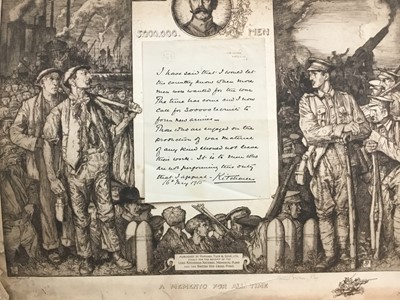 5,000,000. MEN
I have said that I would let
the country know when more
men were wanted for the war.
The time has come and I now
call for 300,000 recruits to
form new armies —
Those who are engaged on the
production of war material
of any kind should not leave
their work. It is to men who
are not performing this duty
that I appeal — Kitchener
May 1915
A MEMENTO FOR ALL TIME